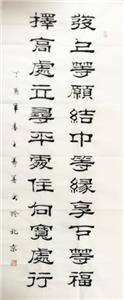 發上等願結中等緣享下等福
擇高處立尋平處住向寬處行
丁酉年春 於北京